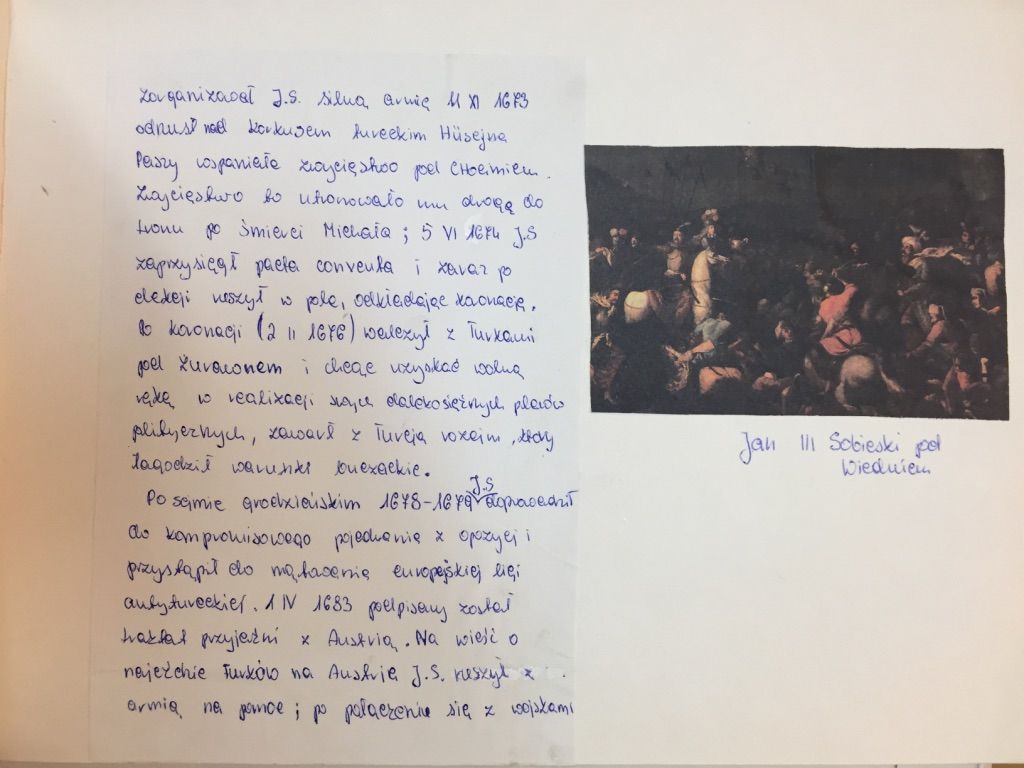 Zorganizował J.S. silną armię 11 XI 1673
odniósł nad korkusem tureckim Hüsejna
Paszy wspaniałe zwycięstwo pod Chocimiem.
Zwycięstwo to utorowało mu drogę do
tronu po śmierci Michała; 5 VI 1674 J.S
zaprzysiągł pacta conventa i zaraz po
elekcji ruszył w pole, odkładając koronację.
Po koronacji (2 II 1676) walczył z Turkami
pod Żurawnem i chcąc uzyskać wolną
rękę w realizacji swych dalekosiężnych planów
plitycznych, zawarł z Turcją rozejm, który
łagodził warunki buczackie.
Po sejmie grodzieńskim 1678-1679 J.S doprowadził
do kompromisowego pojednania z opozycji i
przystąpił do europejskiej ligi
antytureckiej. 1 IV 1683 podpisany został
traktat przyjeźni z Austrią. Na wieść o
najeździe Turków na Austrię J.S. ruszył z
armią na pomoc; po połączeniu się z wojskami
Jan III Sobieski pod
Wiedniem